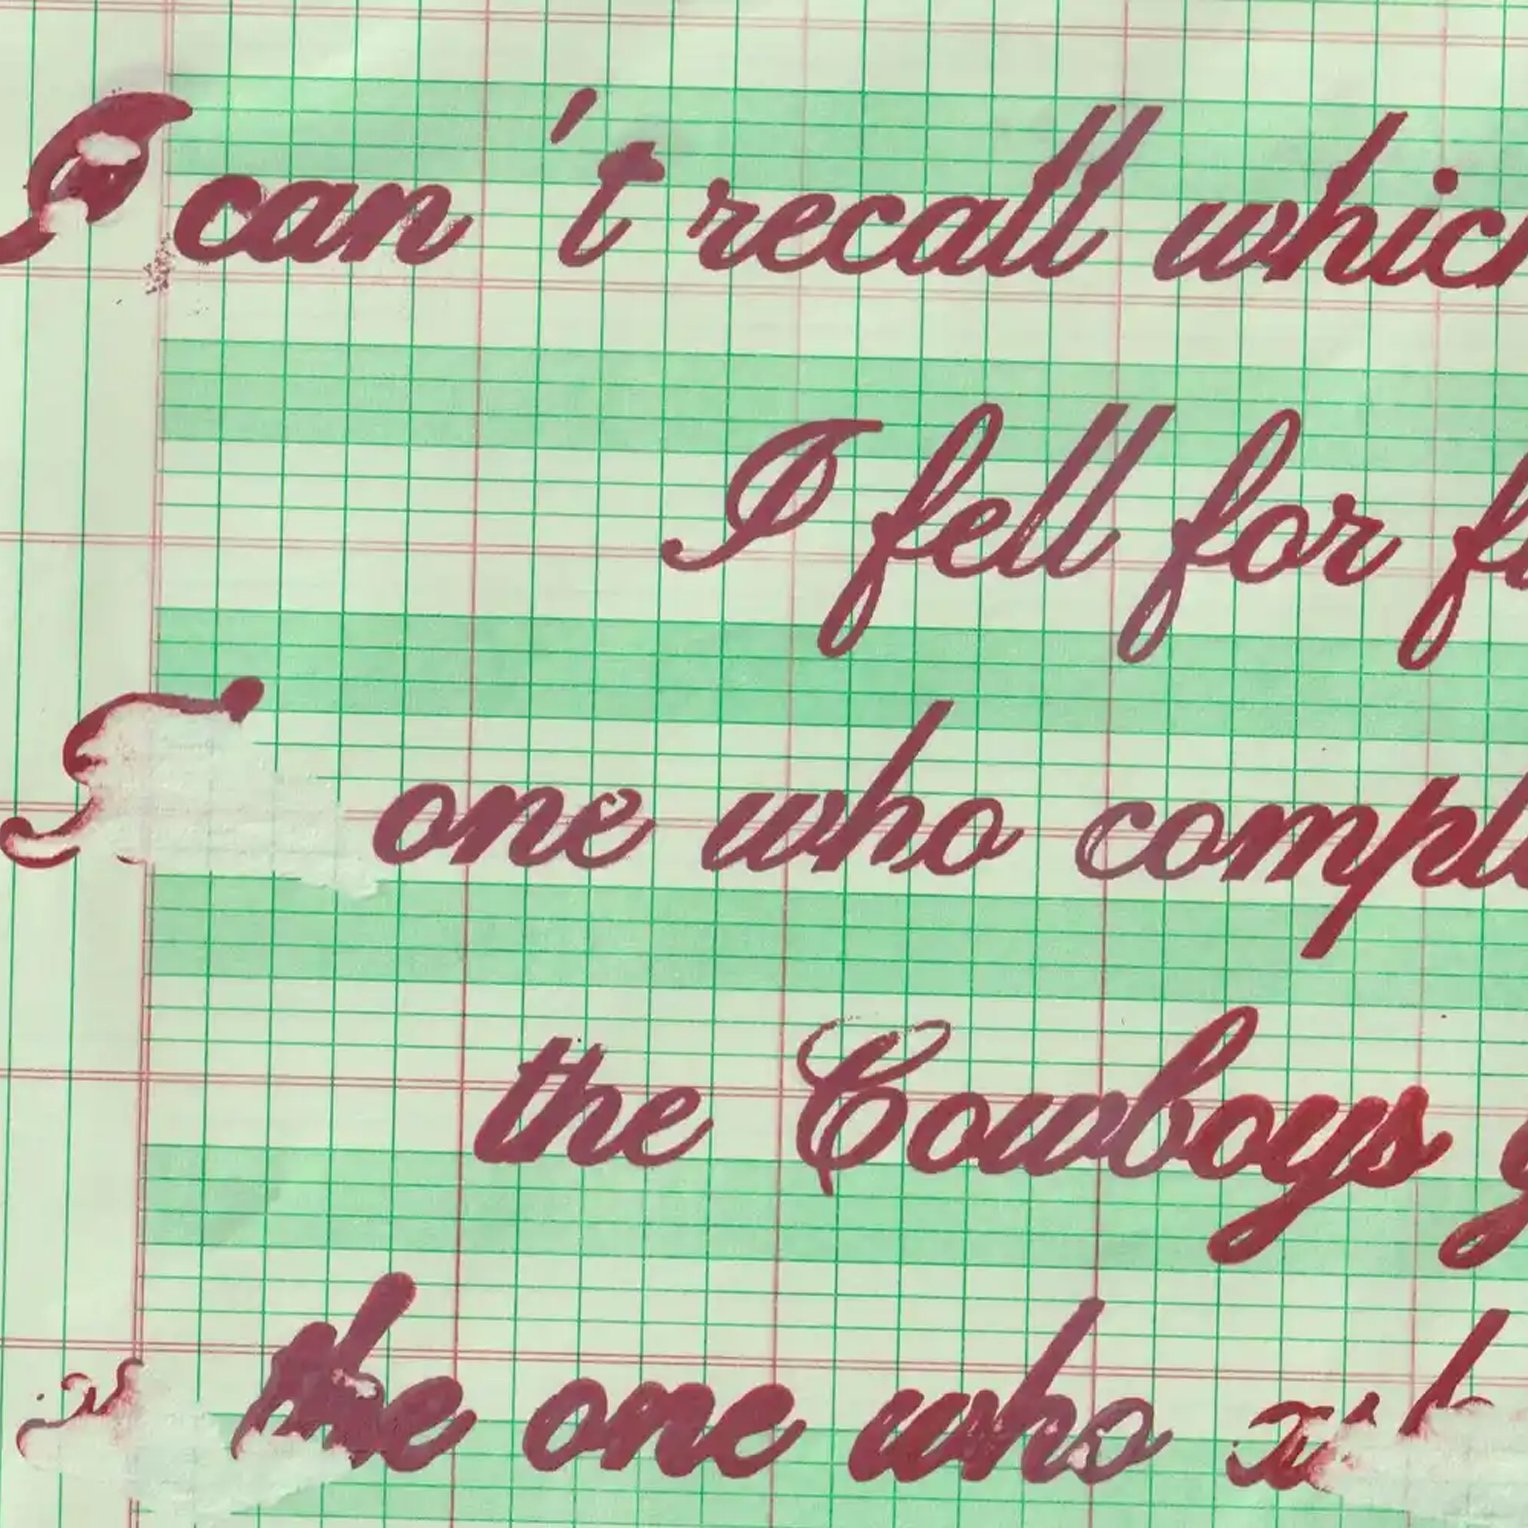 I can't recall which
I fell for
one who
the Cowboys
the one who